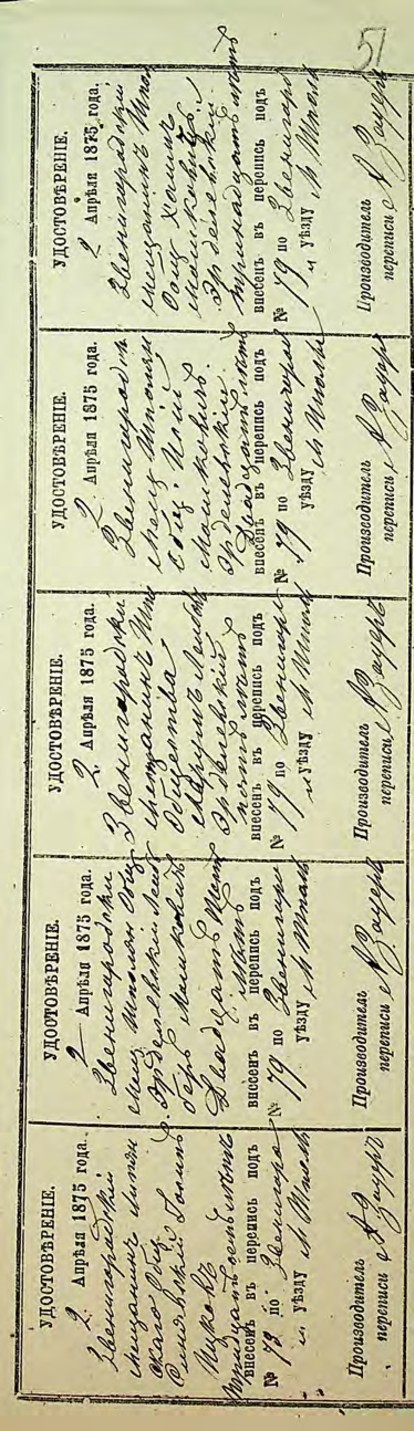 51
УДОСТОВѢРЕНІЕ.
2 Апрѣля 1875 года.
Звенигородскій
мѣщанинъ
Общ.
Ицковъ
внесенъ въ перепись подъ
№ 78 по Звенигор
уѣзду м Шпола
Производитель
переписи А Зауеръ
УДОСТОВѢРЕНІЕ.
2 Апрѣля 1875 года.
Звенигородскій
мѣщ Шполян Общ
Эрделевскій
Мошковичъ
Двадцать
лѣтъ
внесенъ въ перепись подъ
№ 79 по Звенигор
уѣзду м Шпола
Производитель
переписи А Зауеръ
УДОСТОВѢРЕНІЕ.
2 Апрѣля 1875 года.
Звенигородскій
мѣщанинъ Шпо
Общества
Эрделевскій
лѣтъ
внесенъ въ перепись подъ
№ 79 по Звенигор
и уѣзду м Шпола
Производитель
переписи А Зауеръ
УДОСТОВѢРЕНІЕ.
2 Апрѣля 1875 года.
Звенигородск
мѣщ Шполян
Общ.
Мошковичъ
Эрделевскій
Двадцать лѣтъ
внесенъ въ перепись подъ
№ 79 по Звенигор
уѣзду м Шпола
Производитель
переписи А Зауеръ
УДОСТОВѢРЕНІЕ.
2 Апрѣля 1875 года.
Звенигородскій
мѣщанинъ Шпол
Общ
Мошковичъ
Эрделевскій
тринадцать лѣтъ
внесенъ въ перепись подъ
№ 79 по Звенигор
и уѣзду м Шпола
Производитель
переписи А Зауеръ